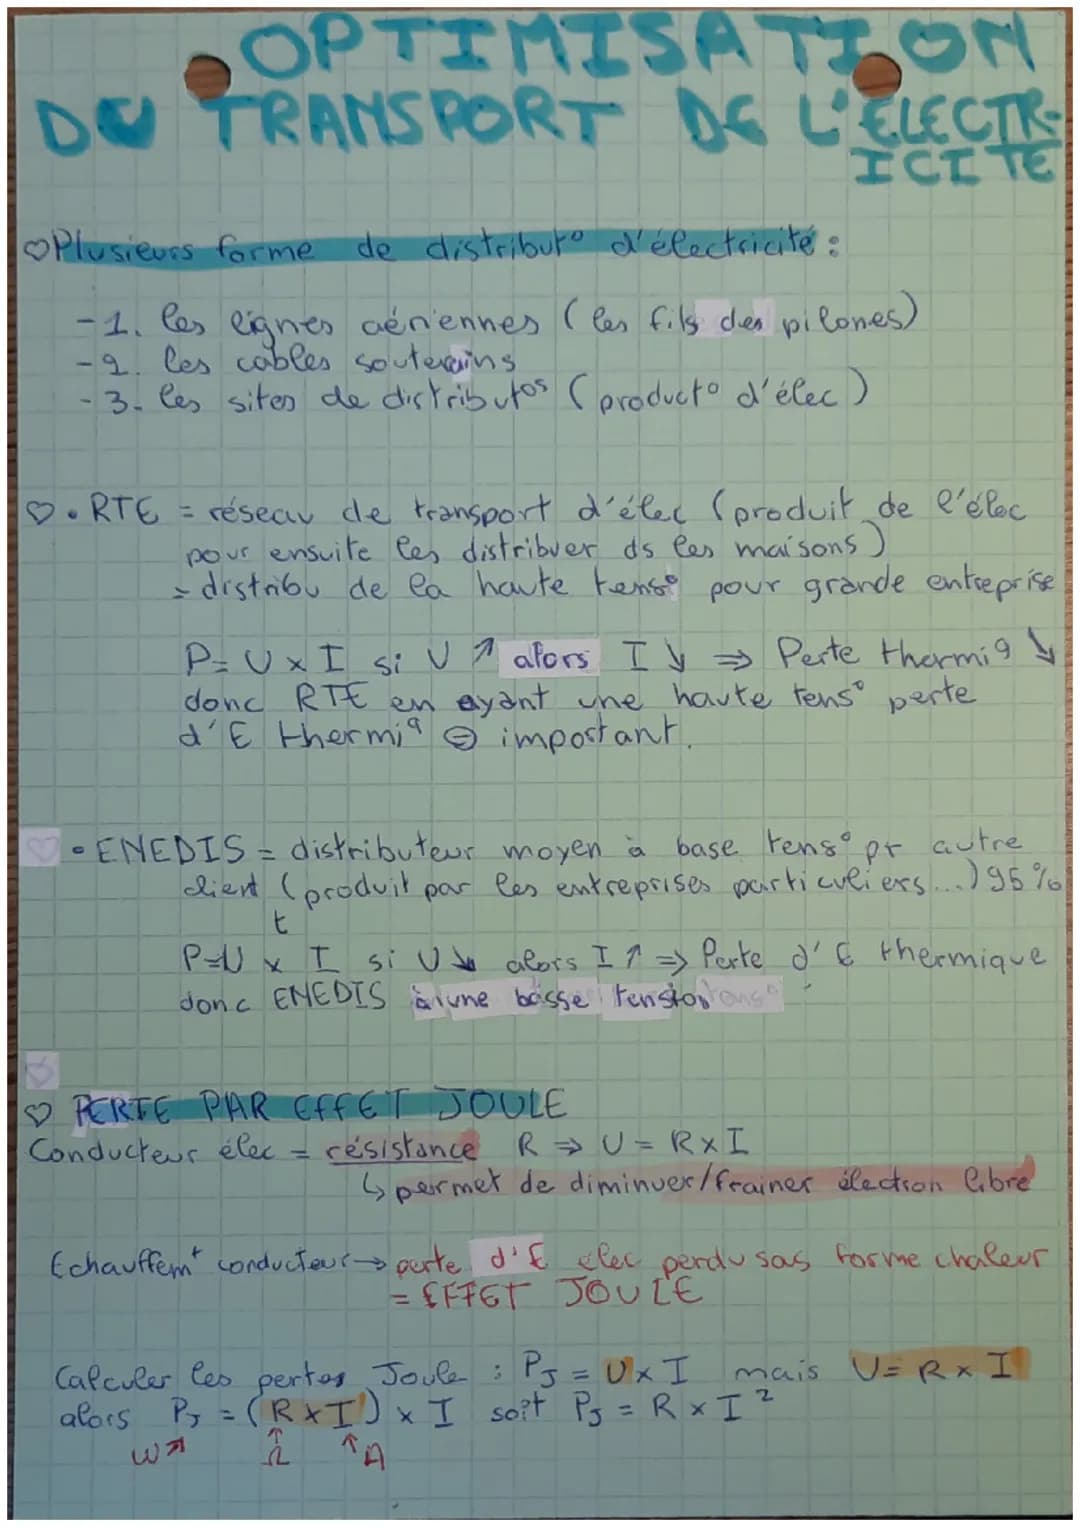 OPTIMISATION
DU TRANSPORT DE L'ÉLECTR-
ICITÉ
♡Plusieurs forme de distribut° d'électricité :
-1. les lignes aériennes (les fils des pilones)
-2. les cables souterains
-3. les sites de distributos (product° d'élec)
♡• RTE = réseau de transport d'élec (produit de l'élec
pour ensuite les distribuer ds les maisons)
= distribu de la haute tens° pour grande entreprise
P= U x I si U ↗ alors I ↘ ⇒ Perte thermiq ↘
donc RTE en ayant une haute tens° perte
d'E thermiq ⊖ important.
♡ • ENEDIS = distributeur moyen à base tens° pr autre
client (produit par les entreprises particuliers...) 95%
t
P=U x I si U ↘ alors I ↗ ⇒ Perte d'E thermique
donc ENEDIS à une basse tension
♡ PERTE PAR EFFET JOULE
Conducteur élec = résistance R ⇒ U = R x I
↳ permet de diminuer/frainer électron libre
Echauffemt conducteur → perte d'E élec perdu sas forme chaleur
= EFFET JOULE
Calculer les pertes Joule : PJ = U x I mais U = R x I
alors PJ = (R x I) x I soit PJ = R x I²
W↗ ↑ ↑A
Ω